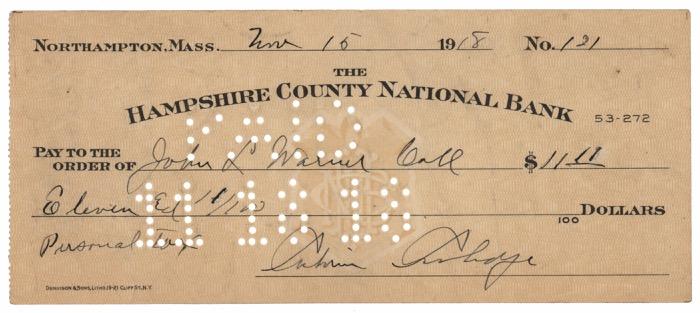 NORTHAMPTON, MASS. Nov 15 1918 No. 121
THE
HAMPSHIRE COUNTY NATIONAL BANK
53-272
PAID
PAY TO THE ORDER OF John L Warner Coll $ 11.11
11 16 18
Eleven 11/100 100 DOLLARS
Personal Tax Calvin Coolidge
DENNISON & SONS, LITHO. 19-21 CLIFF ST., N.Y.